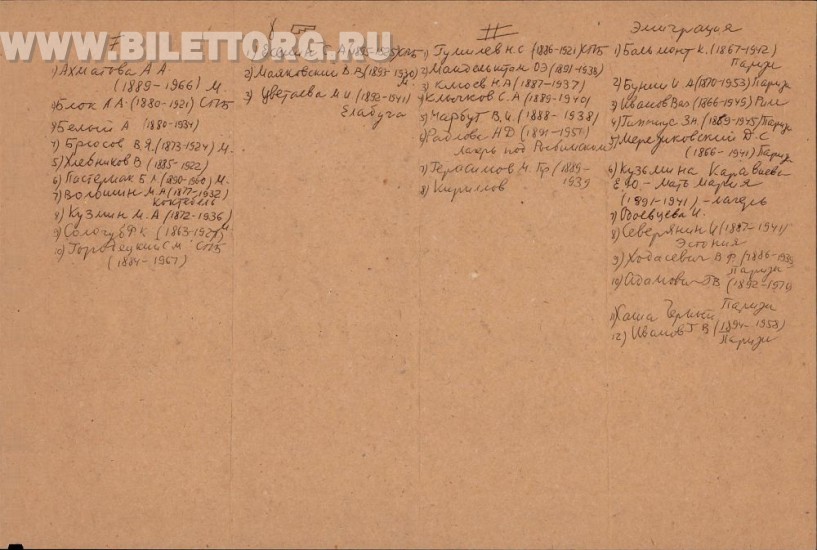 WWW.BILETTORG.RU
I
1) Ахматова А А.
(1889–1966) М.
2) Блок А.А. (1880–1921) СПб
3) Белый А (1880–1934)
4) Брюсов В.Я. (1873–1924) М.
5) Хлебников В (1885–1922)
6) Пастернак Б Л (1890–1960) М.
7) Волошин М.А (1877–1932)
Коктебель
8) Кузмин М.А (1872–1936)
9) Сологуб Ф К (1863–1927)
10) Городецкий С М. СПб
(1884–1967)
II
1) Есенин С.А (1895–1925) СПб
2) Маяковский В.В (1893–1930)
М.
3) Цветаева М.И. (1892–1941)
Елабуга
III
1) Гумилев Н.С (1886–1921) СПб
2) Мандельштам ОЭ (1891–1938)
3) Клюев Н А (1887–1937)
4) Клычков С.А (1889–1940)
5) Нарбут В.И. (1888–1938)
6) Радлова А Д (1891–1951)
лагерь под Рыбинском
7) Герасимов М. Пр (1889–
1939
8) Кириллов
Эмиграция
1) Бальмонт К. (1867–1942)
Париж
2) Бунин И.А (1870–1953) Париж
3) Иванов Вяч (1866–1949) Рим
4) Гиппиус Зн. (1869–1945) Париж
5) Мережковский Д.С
(1866–1941) Париж
6) Кузьмина Караваева
Е Ю. – мать Мария
(1891–1941) – лагерь
7) Одоевцева И.
8) Северянин И (1887–1941)
Эстония
9) Ходасевич В.Ф. (1886–1939
Париж
10) Адамович ГВ (1892–197
Париж
11) Саша Черный
12) Иванов Г В (1894–1958)
Париж